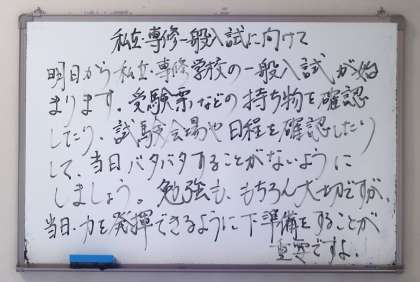 私立・専修一般入試に向けて
明日から私立・専修学校の一般入試が始
まります。受験票などの持ち物を確認
したり、試験会場や日程を確認したり
して、当日バタバタすることがないように
しましょう。勉強も、もちろん大切ですが、
当日、力を発揮できるように下準備をすることが
重要ですよ。